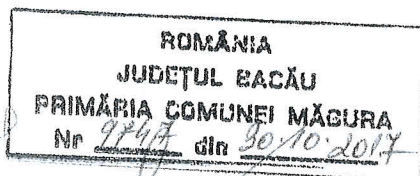 ROMÂNIA
JUDEŢUL BACĂU
PRIMĂRIA COMUNEI MĂGURA
Nr 9747 din 30.10.2017